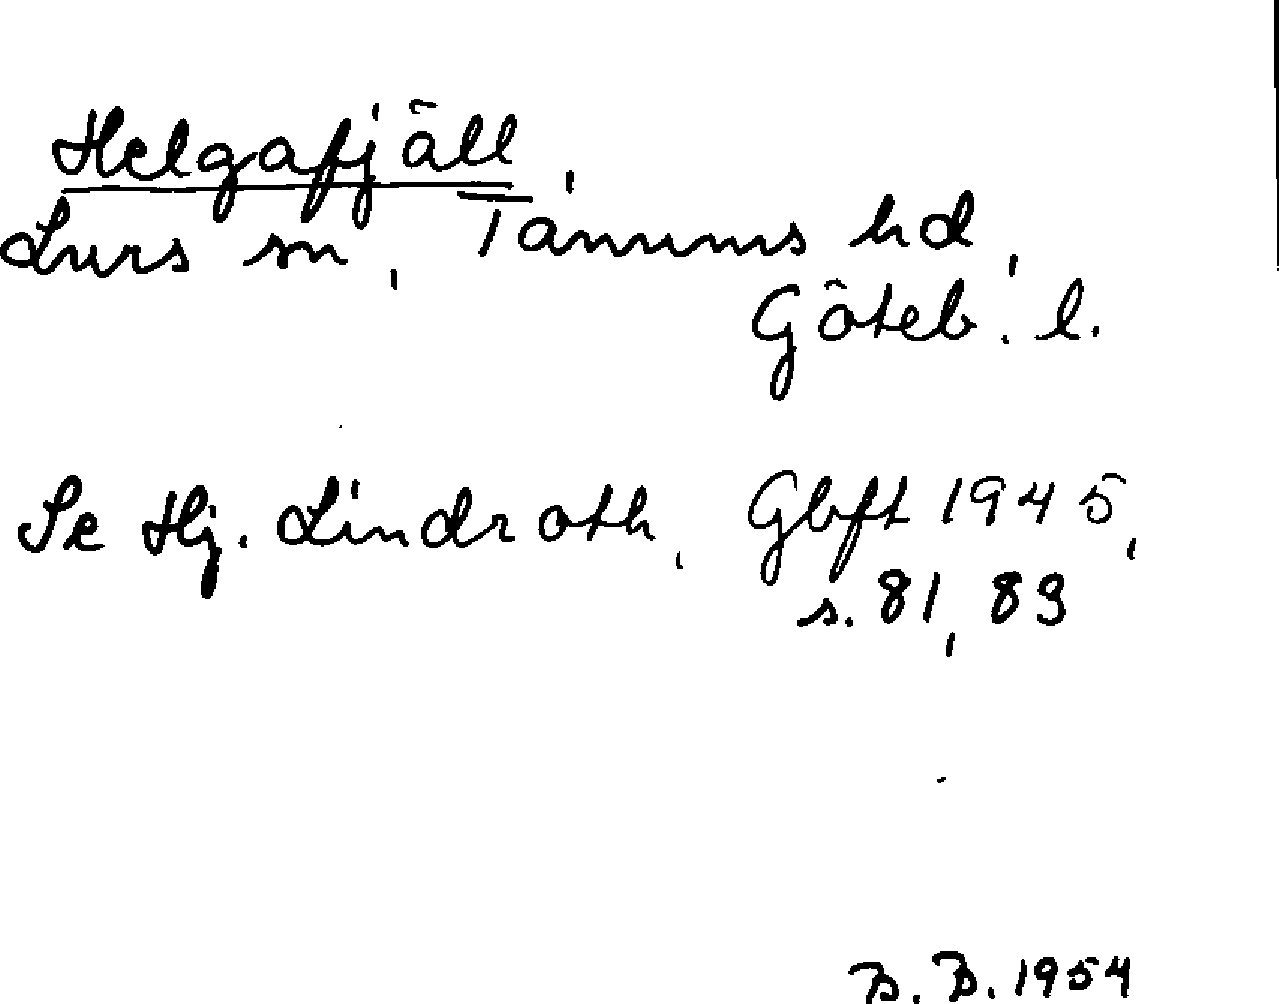 Helgafjäll,
Lurs sn, Tanums hd,
Göteb. l.
Se Hj. Lindroth, Gbft 1945,
s. 81, 83
B. B. 1954